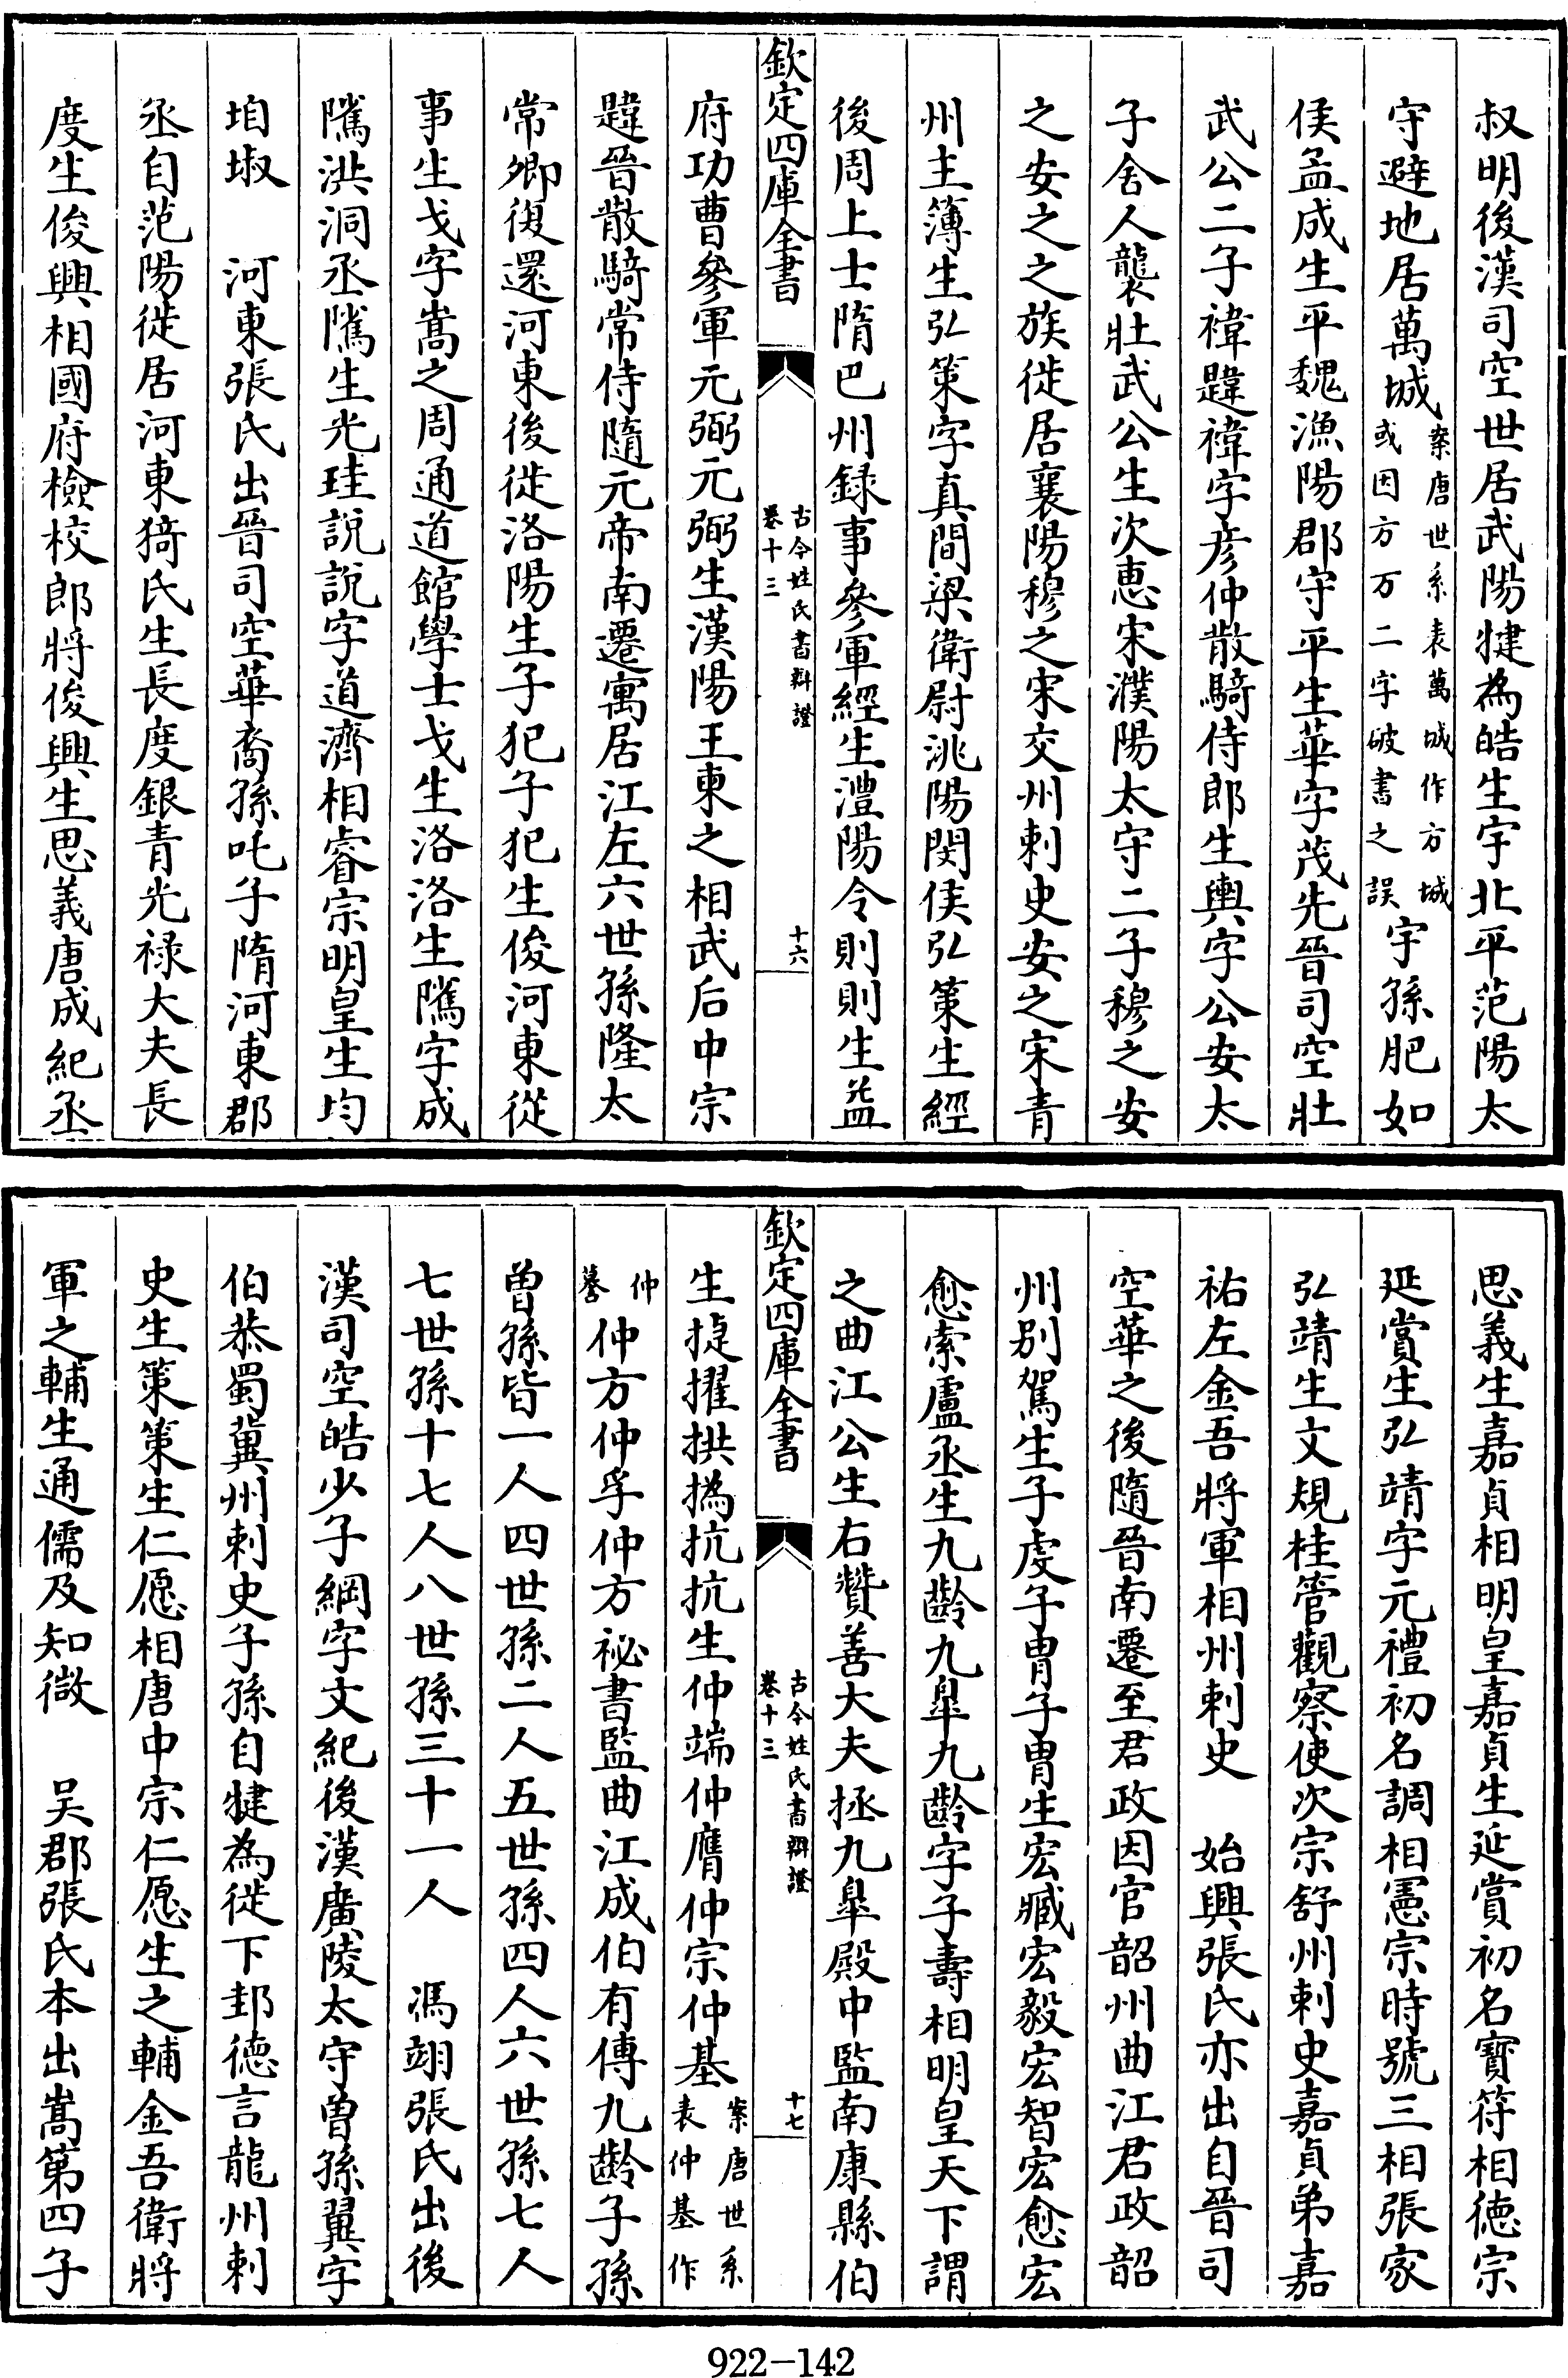 叔明後漢司空世居武陽犍為皓生宇北平范陽太
守避地居萬城案唐世系表萬城作方城或因方万二字破書之誤宇孫肥如
侯孟成生平魏漁陽郡守平生華字茂先晉司空壯
武公二子禕韙禕字彦仲散騎侍郎生輿字公安太
子舍人襲壯武公生次惠宋濮陽太守二子穆之安
之安之之族徙居襄陽穆之宋交州刺史安之宋青
州主簿生弘策字真間梁衛尉洮陽閔侯弘策生經
後周上士隋巴州録事參軍經生澧陽令則則生益
欽定四庫全書
古今姓氏書辯證
卷十三
十六
府功曹參軍元弼元弼生漢陽王柬之相武后中宗
韙晉散騎常侍隨元帝南遷寓居江左六世孫隆太
常卿復還河東後徙洛陽生子犯子犯生俊河東從
事生戈字嵩之周通道館學士戈生洛洛生隲字成
隲洪洞丞隲生光珪說說字道濟相睿宗明皇生均
垍埱　河東張氏出晉司空華裔孫吒子隋河東郡
丞自范陽徙居河東猗氏生長度銀青光禄大夫長
度生俊興相國府檢校郎將俊興生思義唐成紀丞
思義生嘉貞相明皇嘉貞生延賞初名寳符相徳宗
延賞生弘靖字元禮初名調相憲宗時號三相張家
弘靖生文規桂管觀察使次宗舒州刺史嘉貞弟嘉
祐左金吾將軍相州刺史　始興張氏亦出自晉司
空華之後隨晉南遷至君政因官韶州曲江君政韶
州別駕生子虔子胄子胄生宏臧宏毅宏智宏愈宏
愈索盧丞生九齡九臯九齡字子壽相明皇天下謂
之曲江公生右贊善大夫拯九臯殿中監南康縣伯
欽定四庫全書
古今姓氏書辯證
卷十三
十七
生捷擢拱撝抗抗生仲端仲膺仲宗仲基案唐世系表仲基作
仲謩仲方仲孚仲方祕書監曲江成伯有傳九齡子孫
曽孫皆一人四世孫二人五世孫四人六世孫七人
七世孫十七人八世孫三十一人　馮翊張氏出後
漢司空皓少子綱字文紀後漢廣陵太守曽孫翼字
伯恭蜀冀州刺史子孫自犍為徙下邽徳言龍州刺
史生策策生仁愿相唐中宗仁愿生之輔金吾衛將
軍之輔生通儒及知微　吴郡張氏本出嵩第四子
922-142